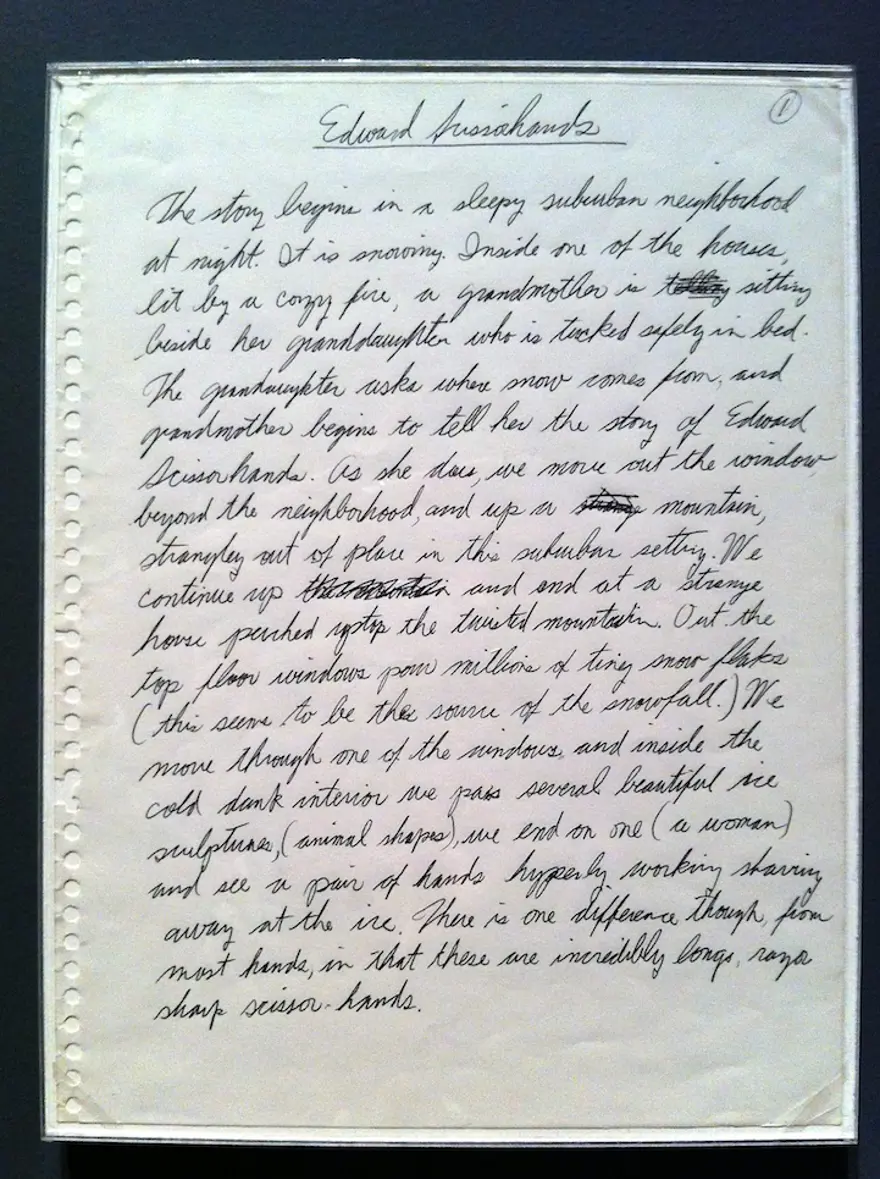 Edward Scissorhands
1
The story begins in a sleepy suburban neighborhood
at night. It is snowing. Inside one of the houses,
lit by a cozy fire, a grandmother is telling sitting
beside her granddaughter who is tucked safely in bed.
The grandaughter asks where snow comes from, and
grandmother begins to tell her the story of Edward
Scissorhands. As she does, we move out the window,
beyond the neighborhood, and up a strange mountain,
strangley out of place in this suburban setting. We
continue up the mountain and end at a strange
house perched uptop the twisted mountain. Out the
top floor windows pour millions of tiny snow flakes
(this seems to be the source of the snowfall.) We
move through one of the windows, and inside the
cold dank interior we pass several beautiful ice
sculptures, (animal shapes), we end on one (a woman)
and see a pair of hands hyperly working shaving
away at the ice. There is one difference though, from
most hands, in that these are incredibly longs, razor
sharp scissor-hands.